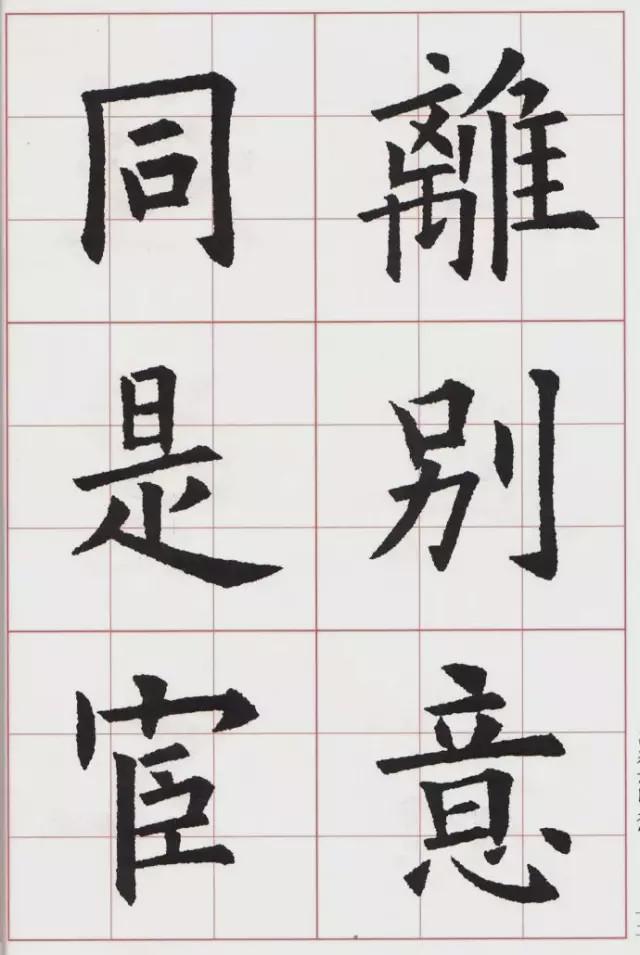 離別意
同是宦